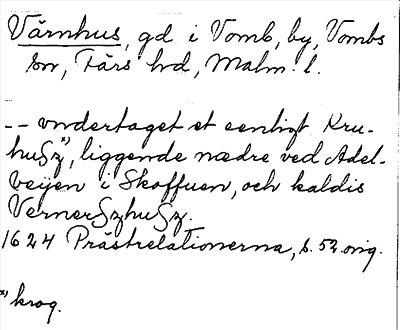 Värnhus, gd i Vomb, by, Vombs
sn, Färs hd, Malm. l.
-- vndertaget et eenligt Kru-
hu§z*), liggende nædre ved Adel-
veijen i Skoffuen, och kaldis
Verner§zhu§z.
1624 Prästrelationerna, s. 52. orig.
*) krog.